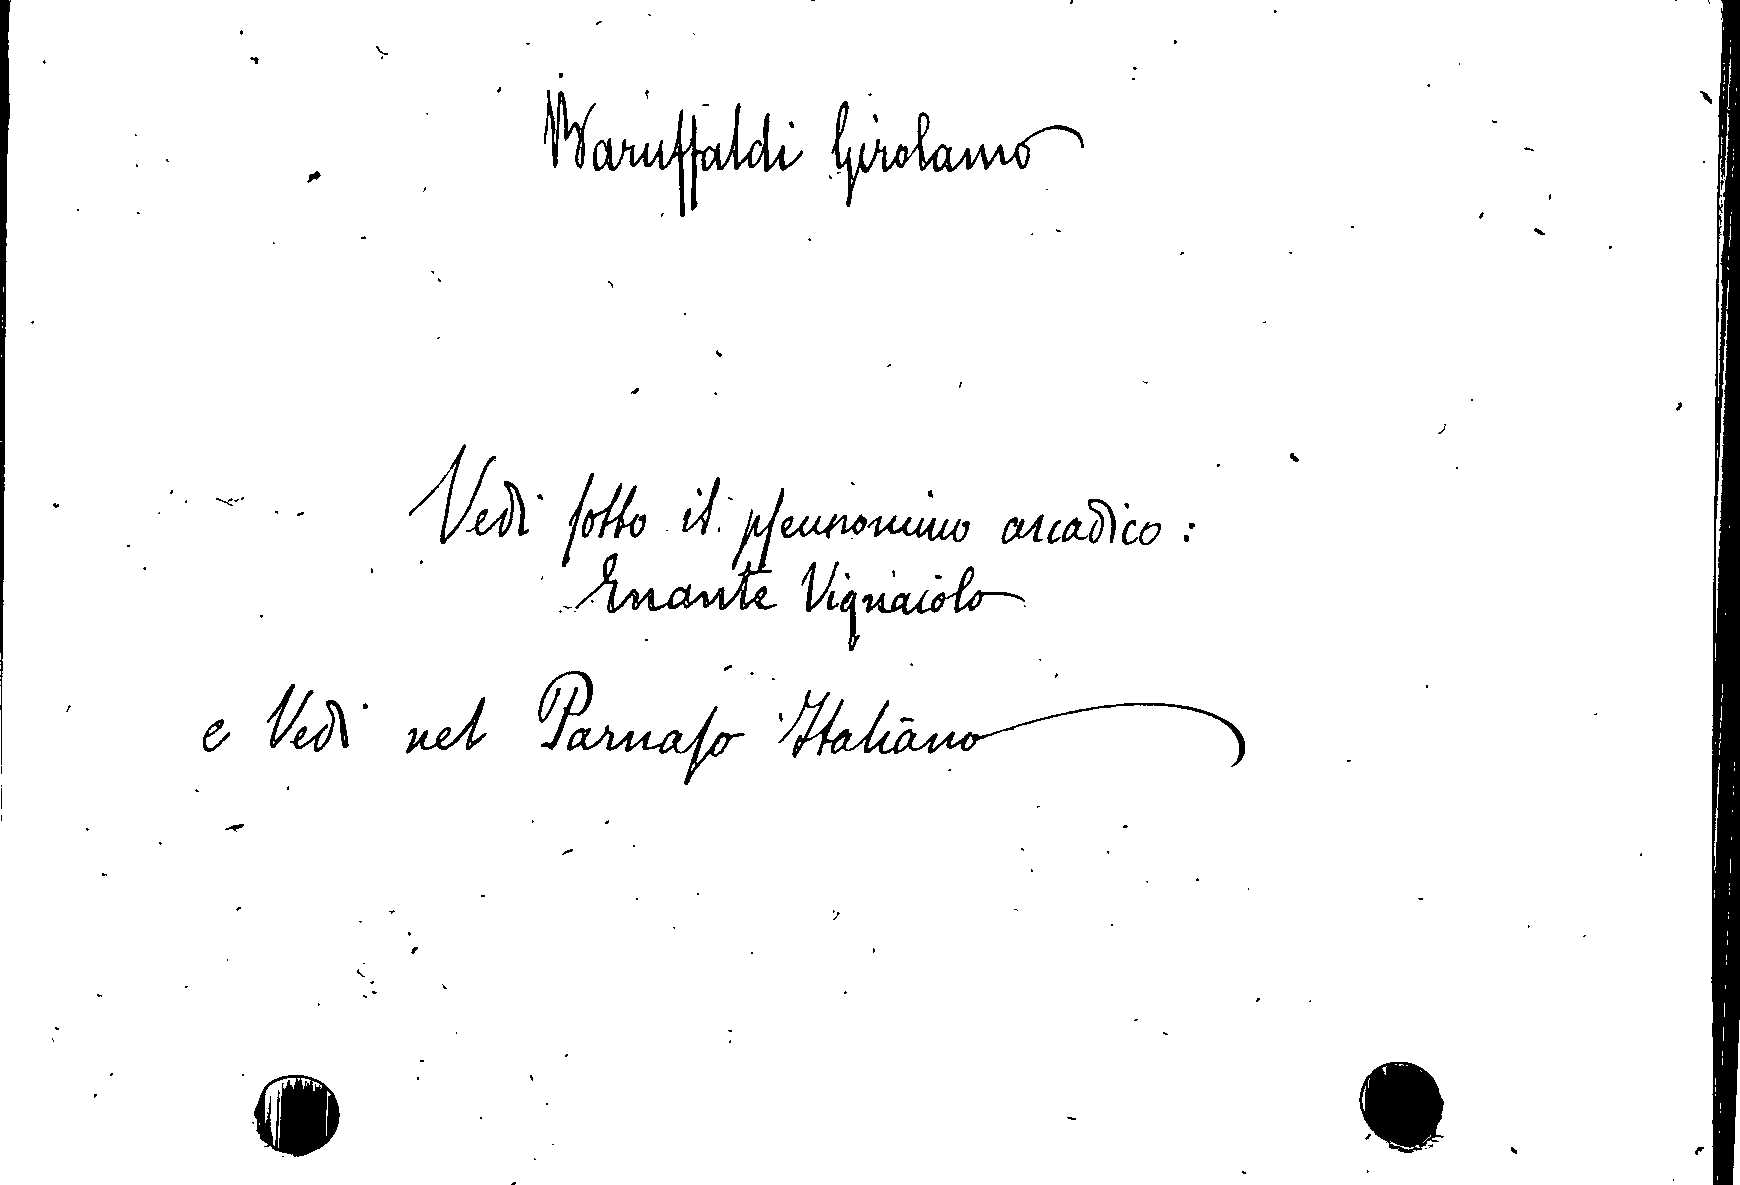 Baruffaldi Girolamo
Vedi sotto il pseunomino arcadico:
Enante Vignaiolo
e Vedi nel Parnaso Italiano